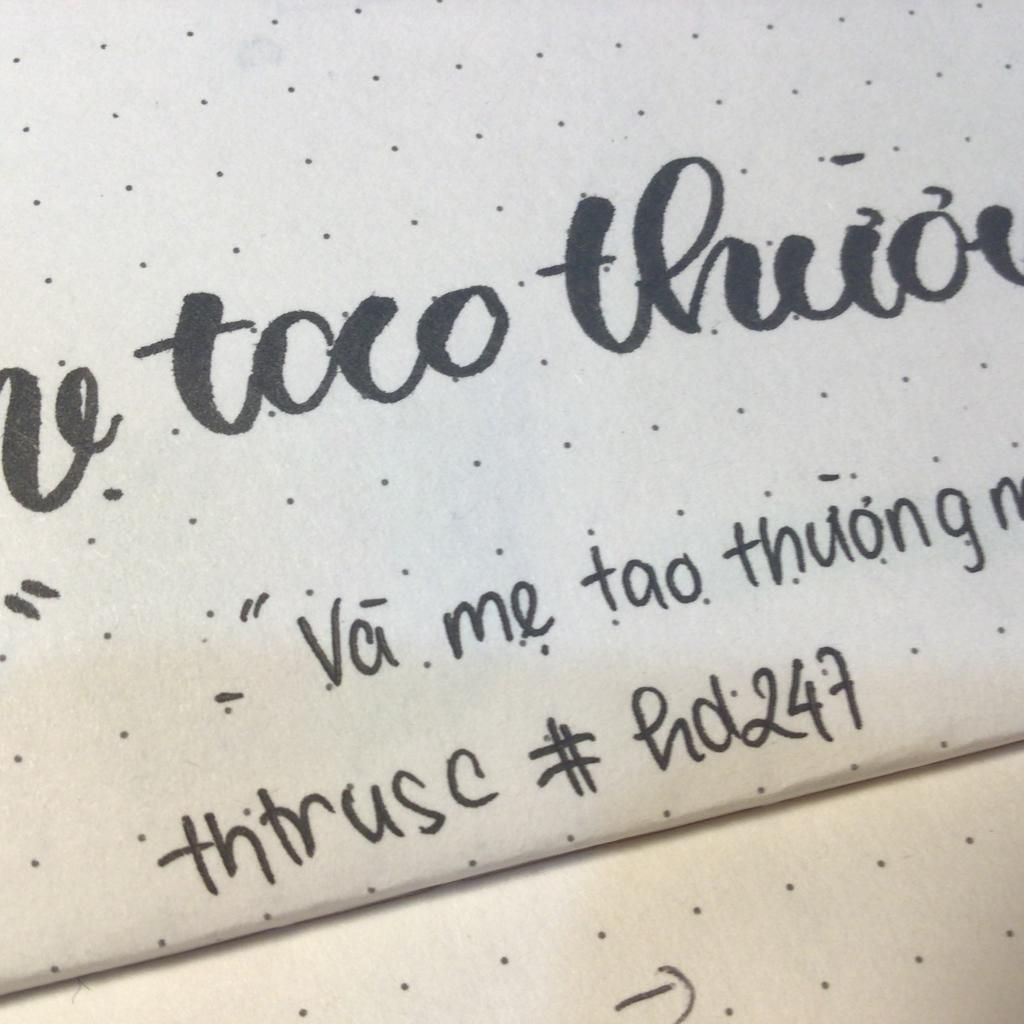 mẹ tao thưở
"Và mẹ tao thường m
thtrusc # hd247